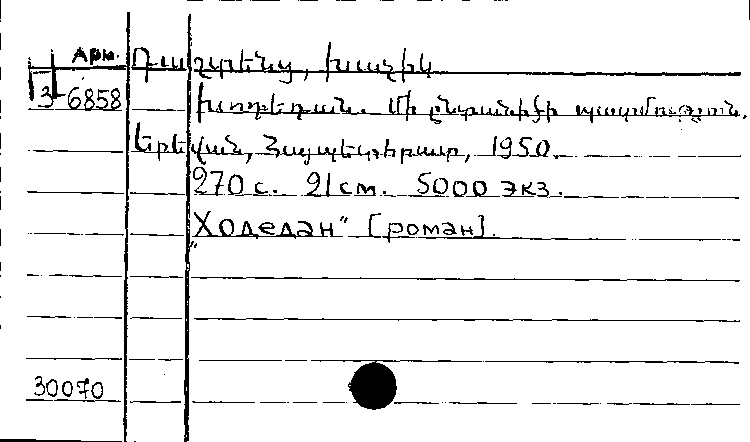 Арм. Դաշտենց, Խաչիկ
3-6858 Խոդեդան. Մի ընտանիքի պատմություն.
Երեվան, Հայպետհրատ, 1950.
270 с. 21 см. 5000 экз.
"Ходедан" [роман].
30070